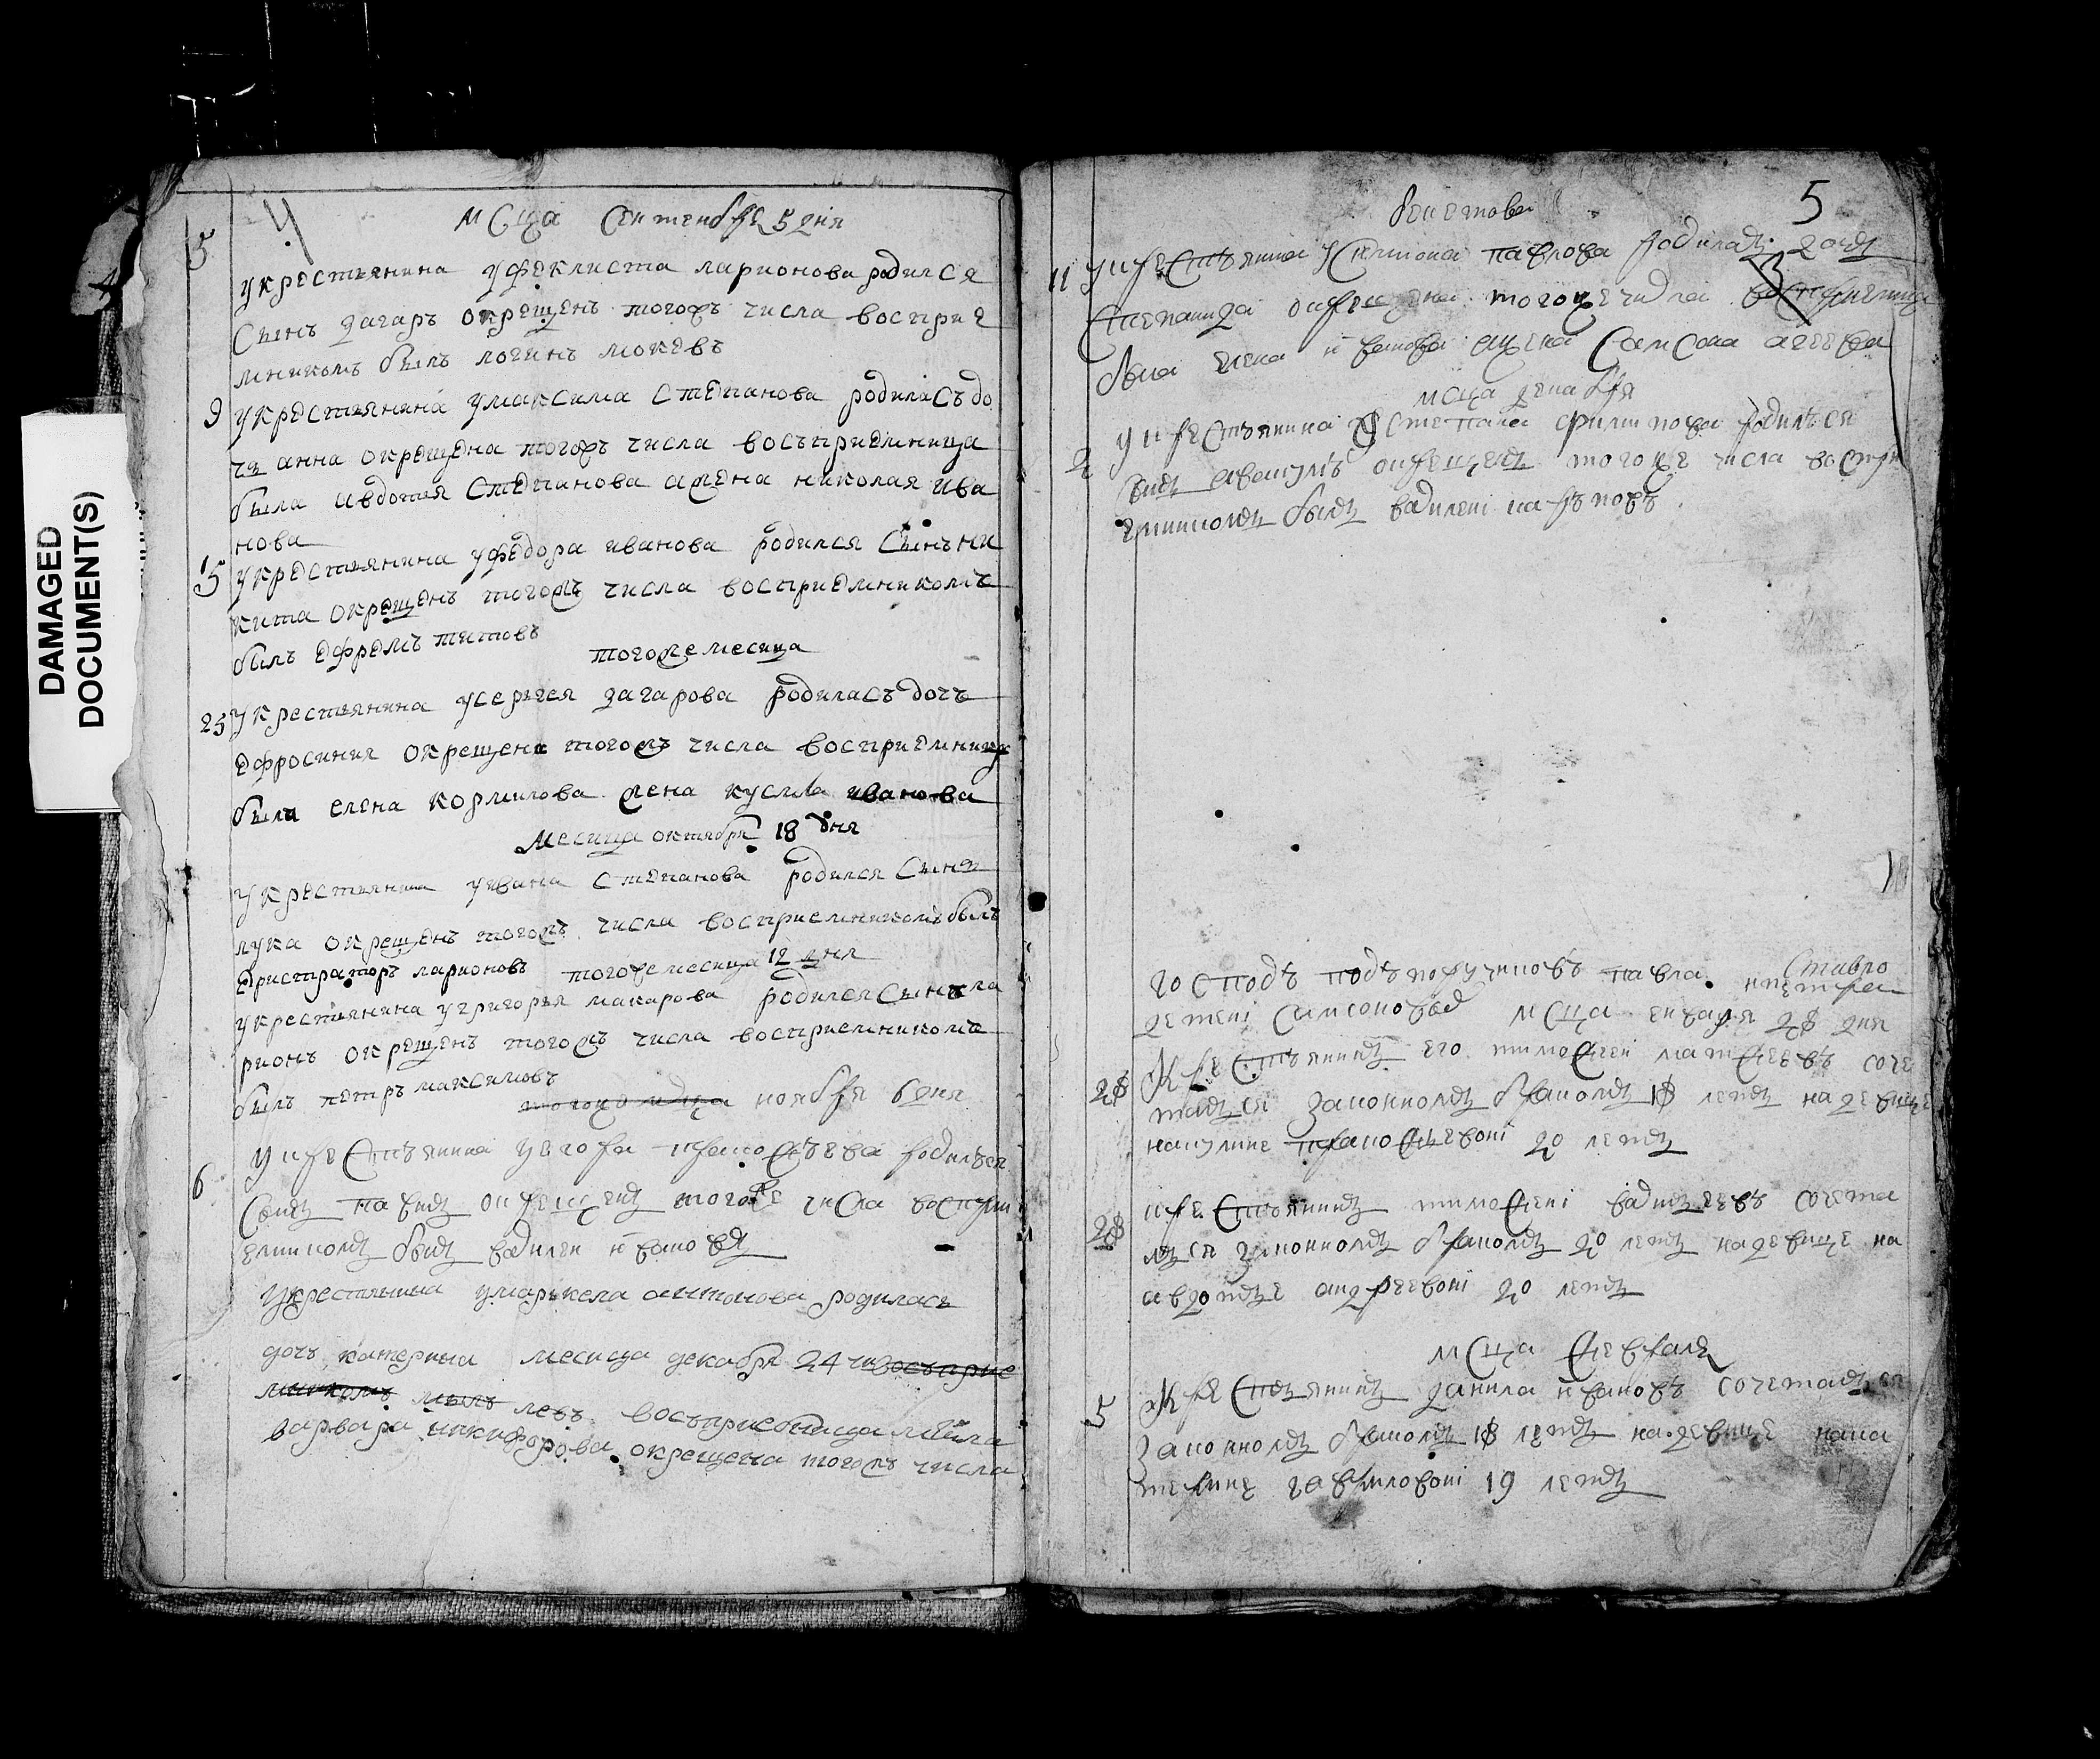 DAMAGED
DOCUMENT(S)
4
мсца сентенбре 5 дня
5
укрестьянина уфеклиста ларионова родился
сынъ захаръ окрещенъ тогожъ числа восприе
мникомъ былъ логинъ мокевъ
9 укрестьянина умаксима степанова родиласъ до
чь анна окрещена тогожъ числа восъприемница
была авдотья степанова жена николая ива
нова
15 укрестьянина уфедора иванова родился сынъ ни
кита окрещенъ тогожъ числа восприемникомъ
былъ ефремъ титовъ
тогожемесица
25 укрестьянина усергея захарова родиласъ дочъ
ефросиния окрещена тогожъ числа восприемница
была елена кормилова жена кусма иванова
месица октября 18 дня
укрестьянина увана степанова родился сынъ
лука окрещенъ тогожъ числа восприемникомъ былъ
ларионовъ тогожемесица 12 дня
укрестьянина угригорья макарова родился сынъ ла
рионъ окрещенъ тогожъ числа восприемникомъ
былъ петръ максимовъ
ноября 6 дня
6 укрестьянина уегора прокофьева родился
сынъ павилъ окрещенъ тогоже числа воспри
емникомъ былъ василеи ивановъ
укрестьянина умаръкела антонова родилась
дочъ катерина месица декабря 24 чи восъприе
мникомъ левъ восъприебница мыла
варвара никифорова окрещена тогожъ числа
5
11 укрестьянина усимиона павлова родилась дочь
степанида окрещена тогожечисла восприемница
была елена иванова жена самсона агеева
мсца декабря
2 укрестьянина устепана филипова родился
сынъ окрещенъ тогоже числа воспри
емникомъ былъ василеи
господъ подъпоручиковъ павла ипетра
детеи самсоновыхъ мсца енваря 28 дня
28 крестьянинъ его тимофеи матфеевъ соче
тался законномъ бракомъ 18 летъ надевице
наулияне прокофьевои 20 летъ
28 крестьянинъ тимофеи васильевъ сочета
лся законномъ бракомъ 20 летъ надевице на
авдотье андреевои 20 летъ
мсца февраля
5 крестьянинъ данила ивановъ сочетался
законномъ бракомъ 18 летъ надевице нака
терине гавриловои 19 летъ